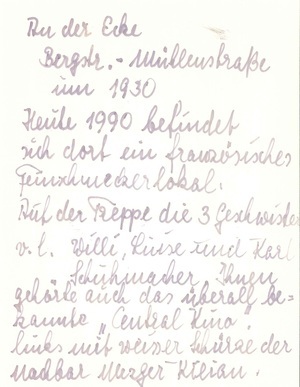 An der Ecke
Bergstr. - Mühlenstraße
um 1930
Heute 1990 befindet
sich dort ein französisches
Feinschmeckerlokal.
Auf der Treppe die 3 Geschwister
v. l. Willi, Luise und Karl
Schuhmacher. Ihnen
gehörte auch das überall be-
kannte „Central Kino".
links mit weisser Schürze der
Nachbar Metzger